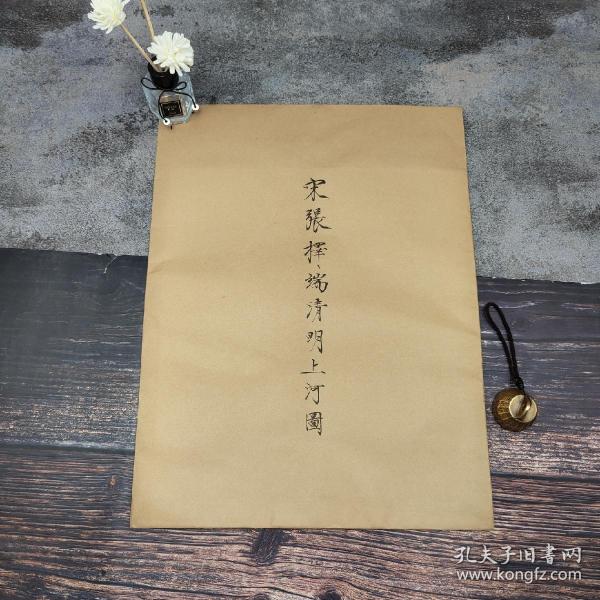 宋張擇端清明上河圖
孔夫子旧書网
www.kongfz.com